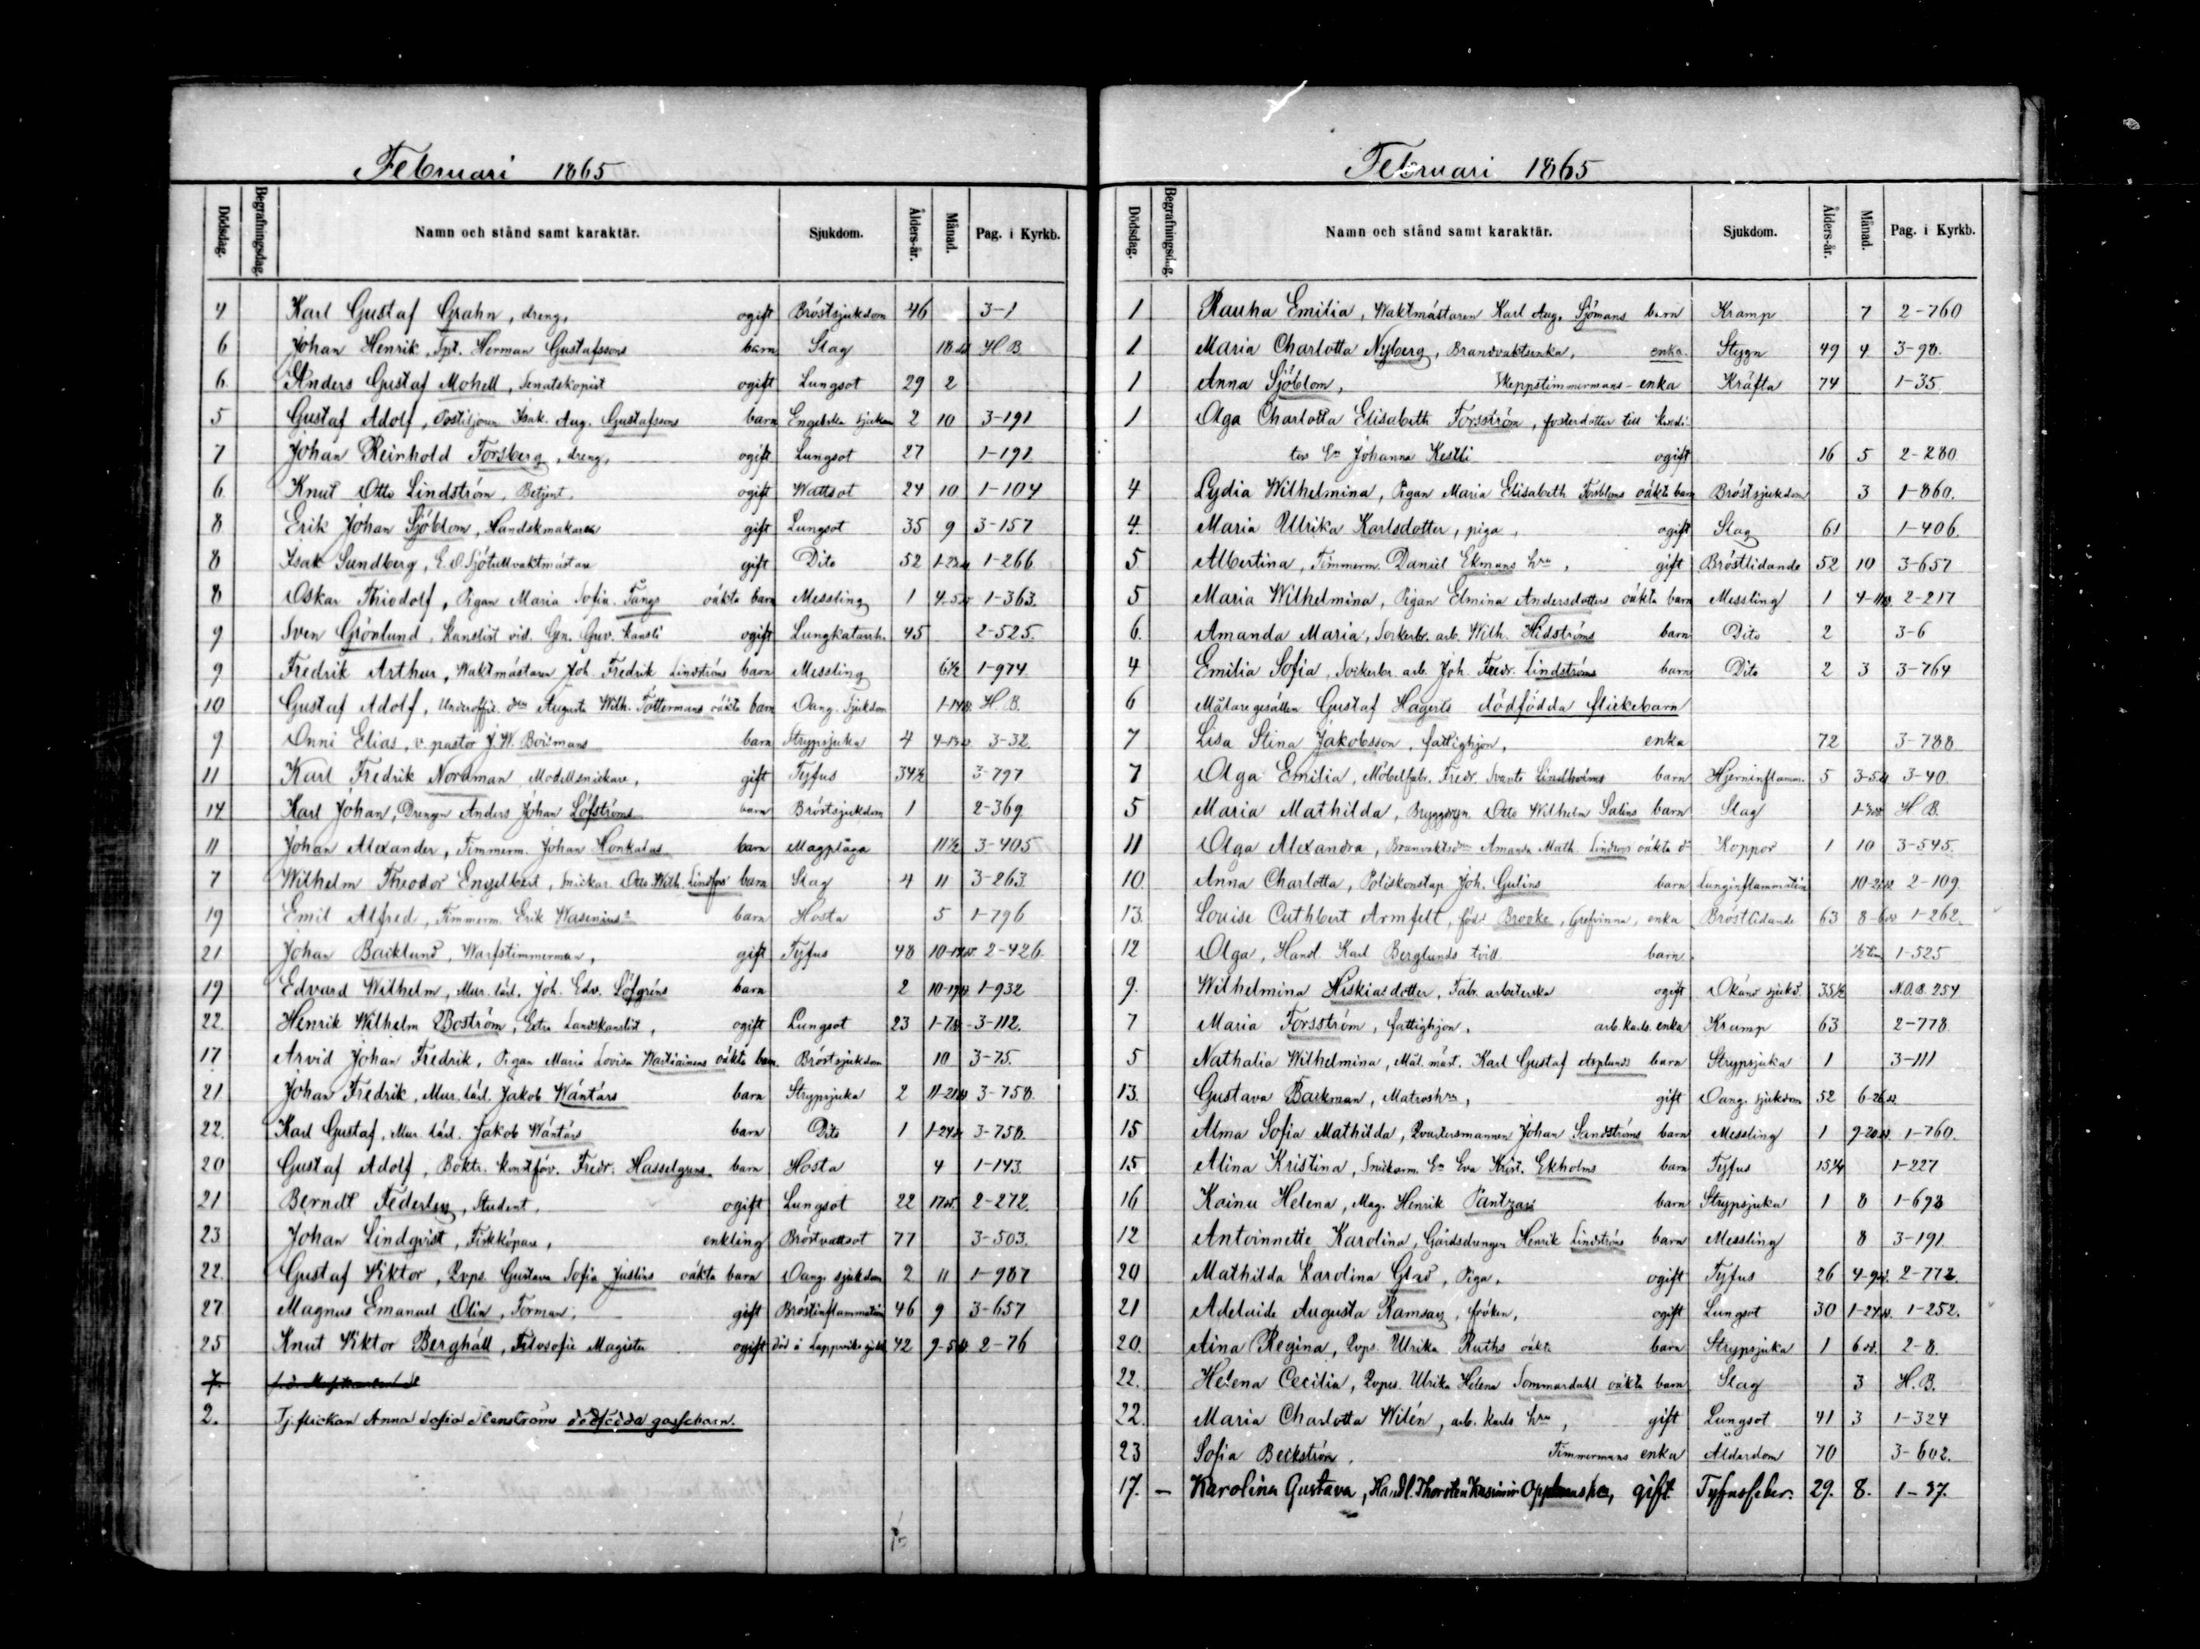 Februari 1865
Dödsdag. Begrafningsdag. Namn och stånd samt karaktär. Sjukdom. Ålders-år. Månad. Pag. i Kyrkb.
4 Karl Gustaf Grahn, dreng, ogift Bröstsjukdom 46 3-1
6 Johan Henrik, Herman Gustafssons barn Slag H B
6. Anders Gustaf Mohell, Senatskopist ogift Lungsot 29 2
5 Gustaf Adolf, Postiljonen Isak. Aug. Gustafssons barn Engelska sjukan 2 10 3-191
7 Johan Reinhold Forsberg, dreng, ogift Lungsot 27 1-191
6. Knut Otto Lindström, Betjent, ogift Wattsot 24 10 1-104
8 Erik Johan Sjöblom, Handskmakare gift Lungsot 35 9 3-157
8 Isak Sundberg, E. O. Sjötullvaktmästare gift Dito 52 1-266
8 Oskar Thiodolf, Pigan Maria Sofia Fångs oäkta barn Messling 1 1-363.
9 Sven Grönlund, Kanslist vid. Gn. Guv. Kansli ogift Lungkatarrh. 45 2-525.
9 Fredrik Arthur, Waktmästaren Joh. Fredrik Lindströms barn Messling 6½ 1-974
10 Gustaf Adolf, Underoffic. Augusta Wilh. Tottermans oäkta barn Oang. Sjukdom H. B.
9 Onni Elias, v. pastor J. W. Boismans barn Strypsjuka 4 3-32
11 Karl Fredrik Nordman, Modellsnickare, gift Tyfus 34½ 3-797
14 Karl Johan, Drengen Anders Johan Löfströms barn Bröstsjukdom 1 2-369
11 Johan Alexander, Timmerm. Johan Honkalas barn Magplåga 11½ 3-405
7 Wilhelm Theodor Engelbert, Snickar. Otto Wilh. Lindfors barn Slag 4 11 3-263
19 Emil Alfred, Timmerm. Erik Wasenius barn Hosta 5 1-796
21 Johan Backlund, Warfstimmerman, gift Tyfus 48 2-426.
19 Edvard Wilhelm, Mur. lärl. Joh. Edv. Löfgréns barn 2 1-932
22. Henrik Wilhelm Boström, Extra Landskanslist, ogift Lungsot 23 3-112.
17 Arvid Johan Fredrik, Pigan Maria Lovisa Wartiainens oäkta barn. Bröstsjukdom 10 3-75.
21 Johan Fredrik, Mur. lärl. Jakob Wäntärs barn Strypsjuka 2 3-758
22. Karl Gustaf, Mur. lärl. Jakob Wäntärs barn Dito 1 3-758.
20 Gustaf Adolf, Boktr. konstförv. Fredr. Hasselgrens barn Hosta 4 1-143
21 Berndt Federley, Student, ogift Lungsot 22 2-272.
23 Johan Lindqvist, Fiskköpare, enkling Bröstvattsot 77 3-503.
22. Gustaf Viktor, Qvps. Gustava Sofia Juslins oäkta barn Oang. sjukdom 2 11 1-987
27 Magnus Emanuel Olin, Forman, gift Bröstinflammation 46 9 3-657
25 Knut Viktor Berghäll, Filosofie Magister ogift död å Lappviks 42 2-76
7.
2. Tj. flickan Anna Sofia Stenströms dödfödda gossebarn.
Februari 1865
Dödsdag. Begrafningsdag. Namn och stånd samt karaktär. Sjukdom. Ålders-år. Månad. Pag. i Kyrkb.
1 Rauha Emilia, Waktmästaren Karl Aug. Sjömans barn Kramp 7 2-760
1. Maria Charlotta Nyberg, Brandvaktsenka, enka. Stygn 49 4 3-98.
1 Anna Sjöblom, Skeppstimmermans- enka Kräfta 74 1-35
1 Olga Charlotta Elisabeth Forsström, fosterdotter till kondi-
tors En Johanna Kestli ogift 16 5 2-280
4 Lydia Wilhelmina, Pigan Maria Elisabeth Forsbloms oäkta barn Bröstsjukdom 3 1-860.
4. Maria Ulrika Karlsdotter, piga, ogift Slag 61 1-406
5 Albertina, Timmerm. Daniel Ekmans hru, gift Bröstlidande 52 10 3-657
5 Maria Wilhelmina, Pigan Elmina Andersdotters oäkta barn Messling 1 2-217
6. Amanda Maria, Sockerbr. arb. Wilh. Hidströms barn Dito 2 3-6
4 Emilia Sofia, Sockerbr. arb. Joh. Fredr. Lindströms barn Dito 2 3 3-764
6 Målaregesällen Gustaf Hagerts dödfödda flickebarn
7 Lisa Stina Jakobsson, fattighjon, enka 72 3-788
7 Olga Emilia, Möbelfabr. Fredr. Svante Lindholms barn Hjerninflamm. 5 3-40.
5 Maria Mathilda, Otto Wilhelm Salins barn Slag H B.
11 Olga Alexandra, Amanda Math. Lindroos oäkta Koppor 1 10 3-545
10. Anna Charlotta, Poliskonstap. Joh. Gulins barn Lunginflammation 2-109
13. Louise Cuthbert Armfelt, född Brooke, Grefvinna, enka Bröstlidande 63 1-262.
12 Olga, Handl. Karl Berglunds tvill. barn 1-525
9. Wilhelmina Hiskiasdotter, Fabr. arbeterska ogift Okänd sjukd. 35½ N.O.B. 254
7 Maria Forsström, fattighjon, arb. karls. enka Kramp 63 2-778
5 Nathalia Wilhelmina, Mål. mäst. Karl Gustaf Asplunds barn Strypsjuka 1 3-111
13. Gustava Backman, Matroshru, gift Oang. sjukdom 52
15 Alma Sofia Mathilda, Qvartersmannen Johan Sandströms barn Messling 1 1-760.
15 Alina Kristina, Snickarm. En Eva Krist. Ekholms barn Tyfus 15¼ 1-227
16 Kainu Helena, Mag. Henrik Pantzars barn Strypsjuka 1 8 1-693
12 Antoinnette Karolina, Gårdsdrengen Henrik Lindströms barn Messling 8 3-191
20 Mathilda Karolina Glad, Piga, ogift Tyfus 26 2-772.
21 Adelaide Augusta Ramsay, fröken, ogift Lungsot 30 1-252.
20. Aina Regina, Qvps. Ulrika Ruths oäkta barn Strypsjuka 1 2-8.
22. Helena Cecilia, Qvps. Ulrika Helena Sommardahl oäkta barn Slag 3 H. B.
22. Maria Charlotta Wilén, arb. karls hru, gift Lungsot 41 3 1-324
23 Sofia Beckström, Timmermans enka Ålderdom 70 3-602.
17. - Karolina Gustava, Handl. Thorsten Kasimir gift Tyfusfeber. 29. 8. 1-37.